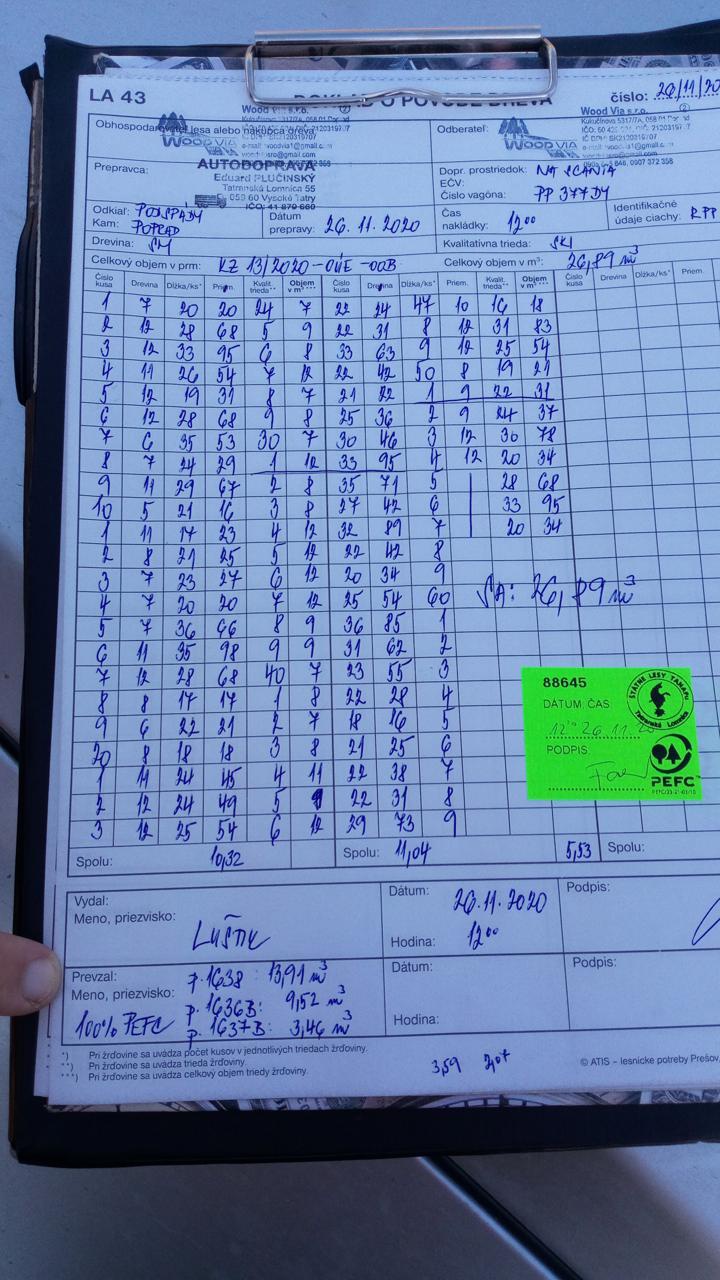 LA 43
DOKLAD O PÔVODE DREVA
číslo: 26/11/20
Obhospodarovateľ lesa alebo nákupca dreva:
Wood Via s.r.o.
WOOD VIA
Odberateľ:
Wood Via s.r.o.
WOOD VIA
Prepravca:
AUTODOPRAVA
Eduard PLUČINSKÝ
Tatranská Lomnica 55
059 60 Vysoké Tatry
IČO: 41 879 660
Dopr. prostriedok: NA SCANIA
EČV:
Číslo vagóna: PP 377DY
Odkiaľ: PODSPÁDY
Kam: POPRAD
Dátum prepravy: 26.11.2020
Čas nakládky: 12 00
Identifikačné údaje ciachy: RPP
Drevina: SM
Kvalitatívna trieda: SKI
Celkový objem v prm: KZ 13/2020-OÚE-OOB
Celkový objem v m³: 26,89 m³
Číslo kusa Drevina Dĺžka/ks* Priem. Kvalit. trieda** Objem v m³*** Číslo kusa Drevina Dĺžka/ks* Priem. Kvalit. trieda** Objem v m³*** Číslo kusa Drevina Dĺžka/ks* Priem.
1 7 20 20 24 7 22 24 47 10 16 18
2 12 28 68 5 9 22 31 8 12 31 83
3 12 33 95 6 8 33 63 9 12 25 54
4 11 26 54 7 12 22 42 50 8 19 21
5 12 19 31 8 7 21 22 1 9 22 31
6 12 28 68 9 8 25 36 2 9 24 37
7 6 35 53 30 7 30 46 3 12 30 78
8 7 24 29 1 12 33 95 4 12 20 34
9 11 29 67 2 8 35 71 5 28 68
10 5 21 16 3 8 27 42 6 33 95
1 11 17 23 4 12 32 89 7 20 34
2 8 21 25 5 12 22 42 8
3 7 23 27 6 12 20 34 9
4 7 20 20 7 12 25 54 60 SA: 26,89 m³
5 7 36 66 8 9 36 85 1
6 11 35 98 9 9 31 62 2
7 12 28 68 40 7 23 55 3
8 8 17 17 1 8 22 28 4
9 6 22 21 2 7 18 16 5
20 8 18 18 3 8 21 25 6
1 11 24 45 4 11 22 38 7
2 12 24 49 5 9 22 31 8
3 12 25 54 6 12 29 73 9
88645
DÁTUM, ČAS
12 00 26.11.20
PODPIS:
ŠTÁTNE LESY TANAPU
Tatranská Lomnica
PEFC
Spolu: 10,32 Spolu: 11,04 5,53 Spolu:
Vydal:
Meno, priezvisko: LUŠTIK
Dátum: 26.11.2020
Hodina: 12 00
Podpis:
Prevzal:
Meno, priezvisko:
100% PEFC
p. 1638 : 13,91 m³
p. 1636B: 9,52 m³
p. 1637B: 3,46 m³
Dátum:
Hodina:
Podpis:
*) Pri žrďovine sa uvádza počet kusov v jednotlivých triedach žrďoviny.
**) Pri žrďovine sa uvádza trieda žrďoviny.
***) Pri žrďovine sa uvádza celkový objem triedy žrďoviny.
3,59
© ATIS – lesnícke potreby Prešov,